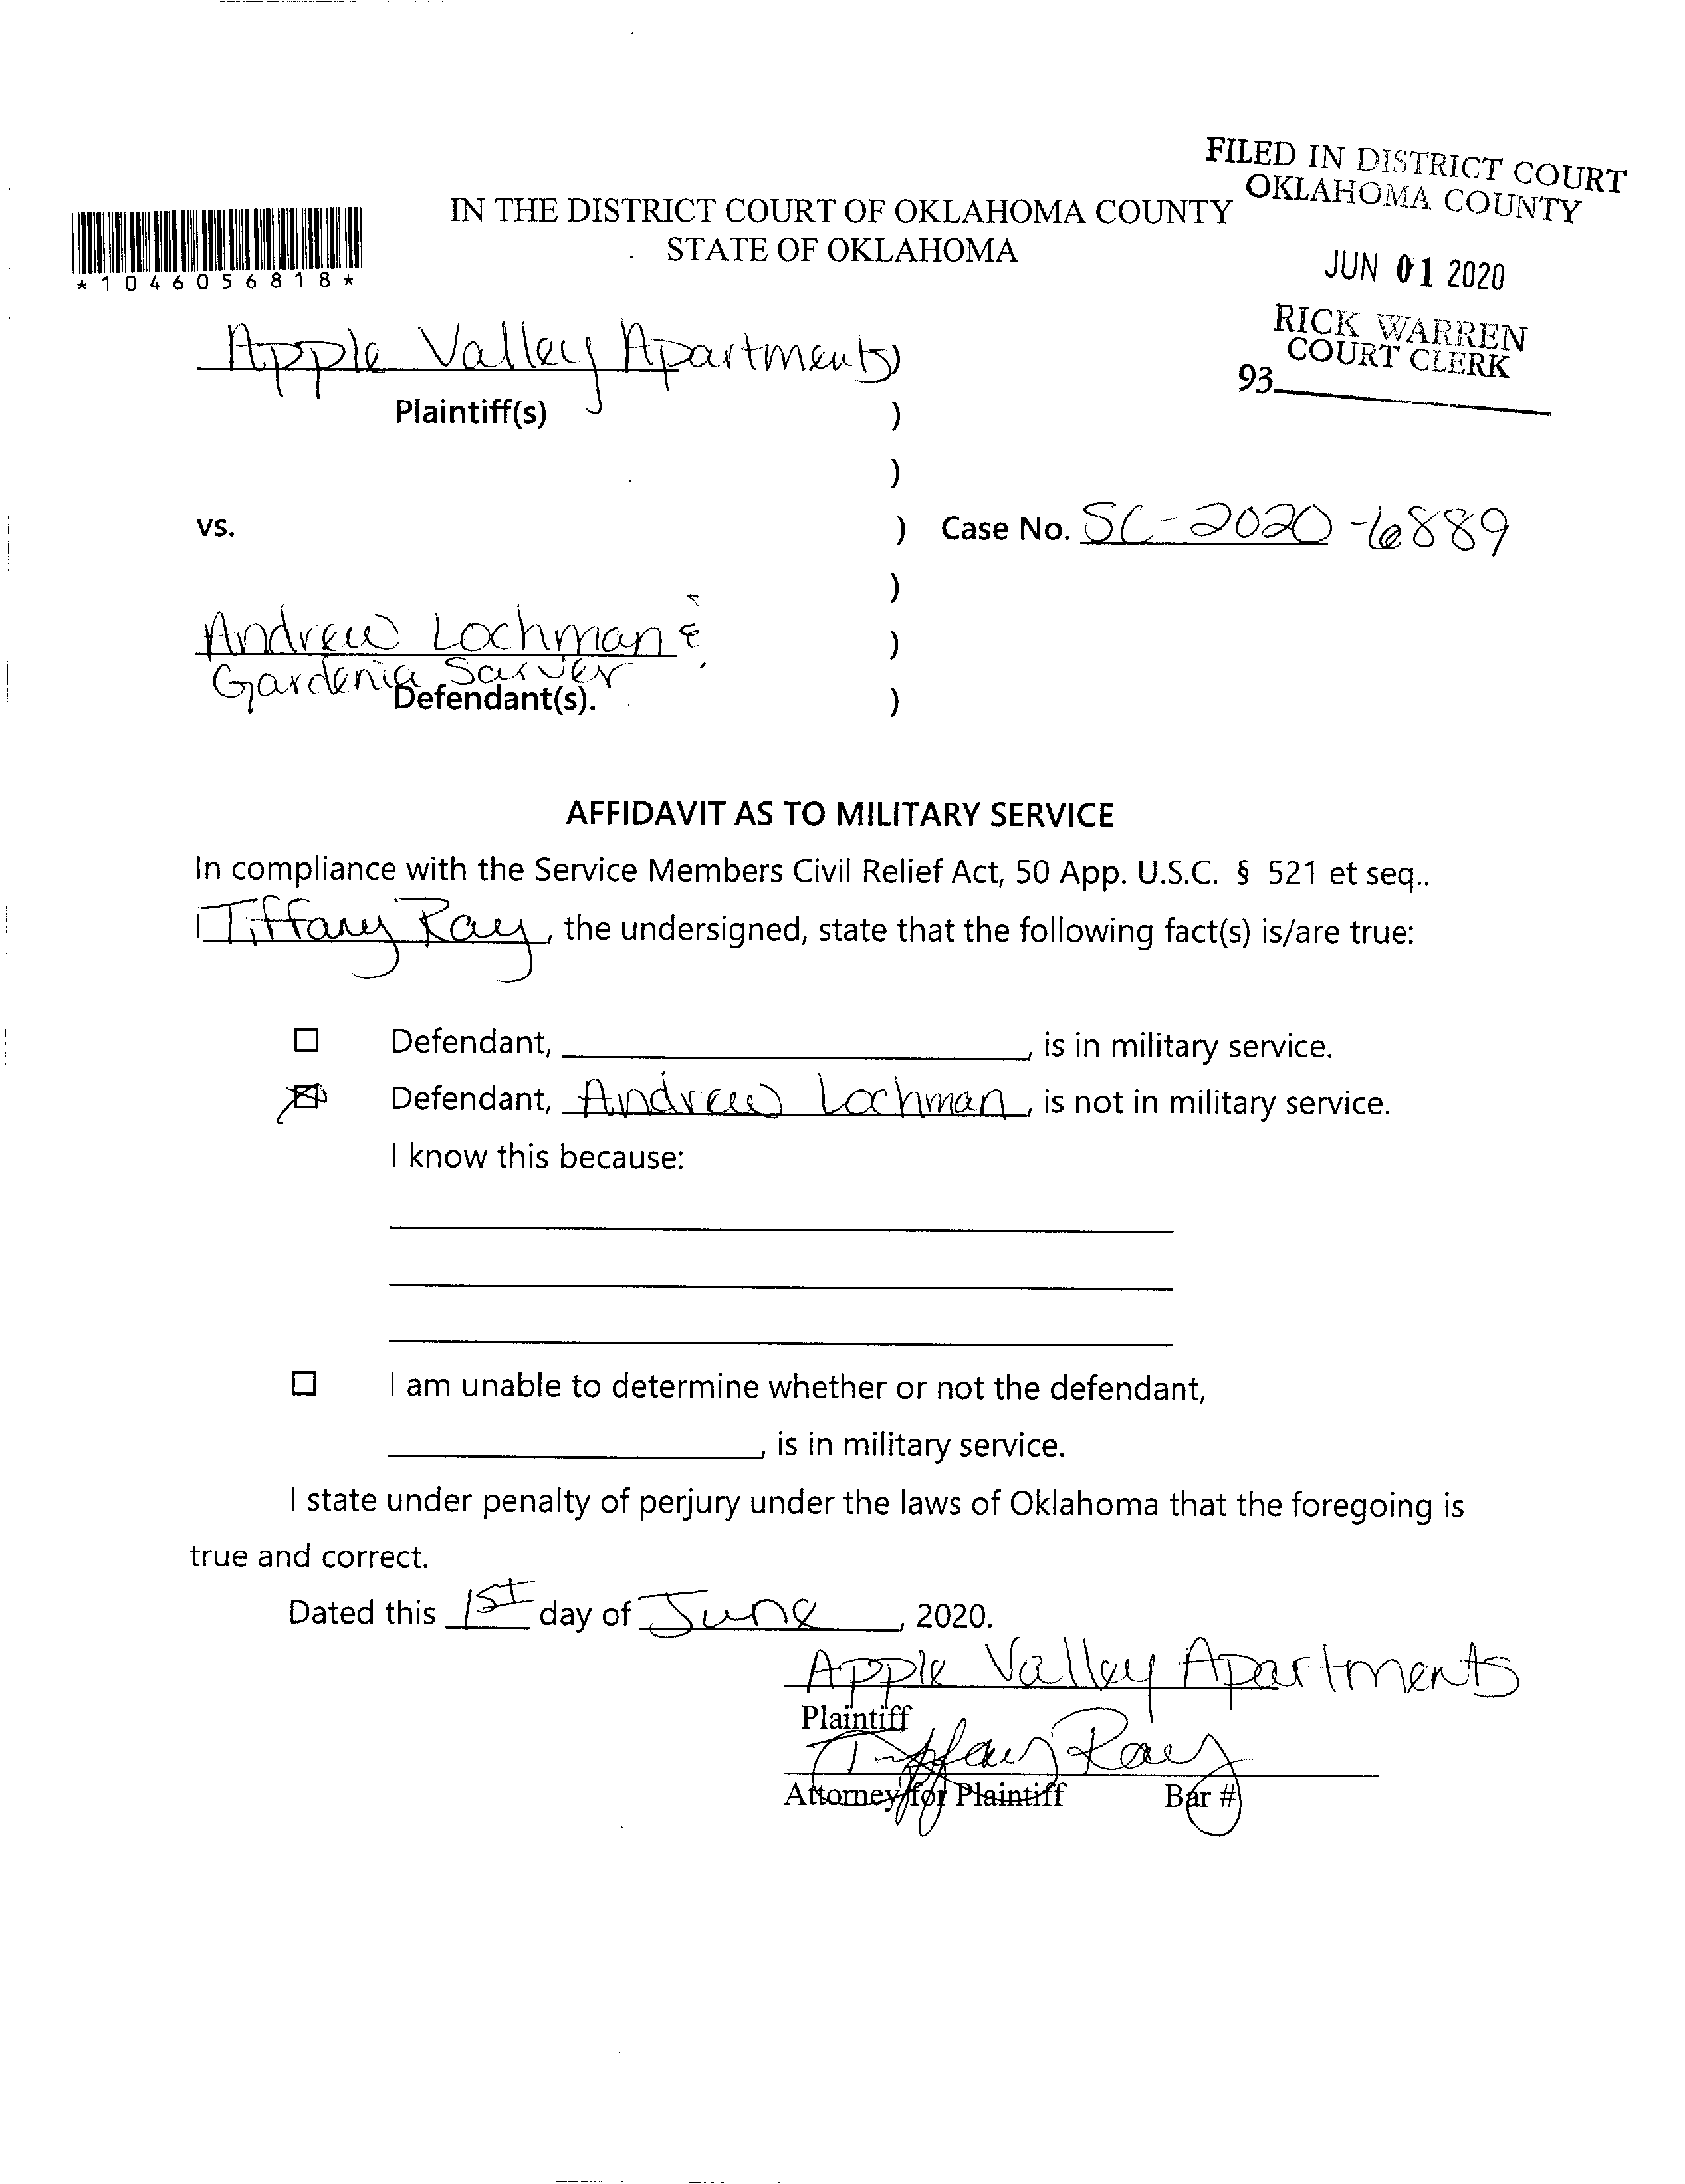 FILED IN DISTRICT COURT
OKLAHOMA COUNTY
IN THE DISTRICT COURT OF OKLAHOMA COUNTY
STATE OF OKLAHOMA
*1046056818*
JUN 01 2020
RICK WARREN
COURT CLERK
93
Apple Valley Apartments )
Plaintiff(s) )
)
vs. ) Case No. SC-2020-6889
)
Andrew Lochman & )
Gardenia Sarver
Defendant(s). )
AFFIDAVIT AS TO MILITARY SERVICE
In compliance with the Service Members Civil Relief Act, 50 App. U.S.C. § 521 et seq..
I Tiffany Ray, the undersigned, state that the following fact(s) is/are true:
☐ Defendant, , is in military service.
☒ Defendant, Andrew Lochman, is not in military service.
I know this because:
☐ I am unable to determine whether or not the defendant,
, is in military service.
I state under penalty of perjury under the laws of Oklahoma that the foregoing is
true and correct.
Dated this 1st day of June, 2020.
Apple Valley Apartments
Plaintiff
Tiffany Ray
Attorney for Plaintiff Bar #